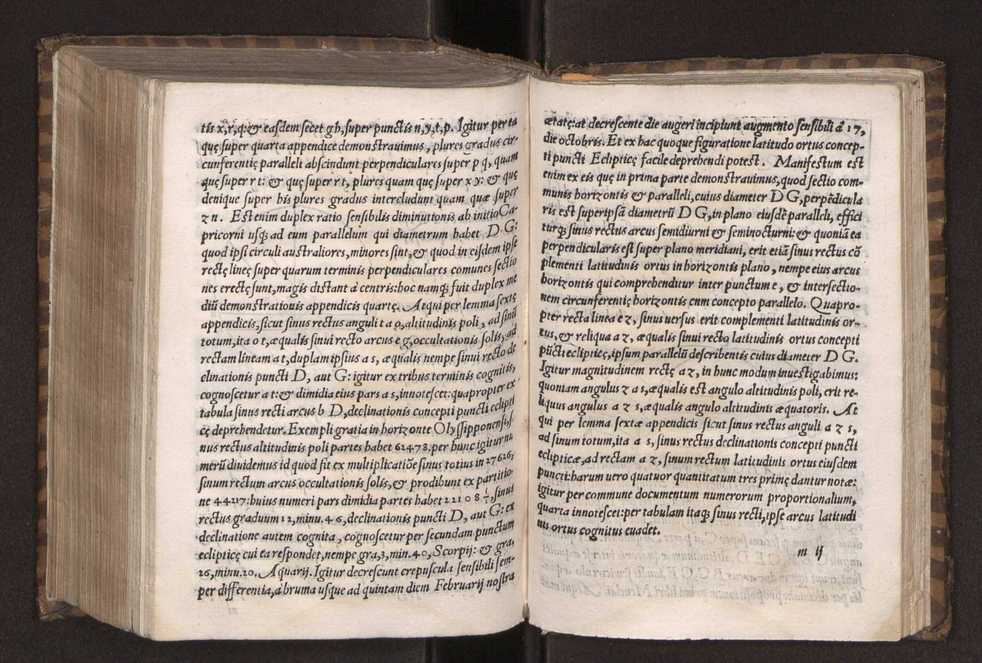 tis x, r, q: & easdem secet gh, super punctis n, y, t, p. Igitur per ea
quę super quarta appendice demonstravimus, plures gradus cir
cunferentię paralleli abscindunt perpendiculares super p q, quam
quę super r t: & quę super r t, plures quam quę super x y: & quę
denique super his plures gradus intercludunt quam quæ super
z n. Est enim duplex ratio sensibilis diminutionis ab initio Ca-
pricorni usq; ad eum parallelum qui diametrum habet D G:
quod ipsi circuli australiores, minores sint, & quod in eisdem ipse
rectę lineę super quarum terminis perpendiculares comunes sectio
nes erectę sunt, magis distant à centris: hoc namq; fuit duplex me
diū demonstrationis appendicis quartę. At qui per lemma sextę
appendicis, sicut sinus rectus anguli t a o, altitudinis poli, ad sinū
totum, ita o t, æqualis sinui recto arcus e g, occultationis solis, ad
rectam lineam a t, duplam ipsius a s, æqualis nempe sinui recto de
clinationis puncti D, aut G: igitur ex tribus terminis cognitis,
cognoscetur a t: & dimidia eius pars a s, innotescet: quapropter ex
tabula sinus recti arcus b D, declinationis concepti puncti eclipti
cę deprehendetur. Exempli gratia in horizonte Olyssipponensi, si
nus rectus altitudinis poli partes habet 62478. per hunc igitur nu
merū dividemus id quod fit ex multiplicatiōe sinus totius in 27626,
sinum rectum arcus occultationis solis, & prodibunt ex partitio-
ne 44217: huius numeri pars dimidia partes habet 22108 ½, sinus
rectus graduum 12, minu. 46, declinationis puncti D, aut G: ex
declinatione autem cognita, cognoscetur per secundam punctum
eclipticę cui ea respondet, nempe gra, 3, min. 40, Scorpij: & gra,
26, minu. 20. Aquarij. Igitur decrescunt crepuscula sensibili sem-
per differentia, à bruma usque ad quintam diem Februarij nostra
ætate: at decrescente die augeri incipiunt augmento sensibili à 17,
die octobris. Et ex hac quoque figuratione latitudo ortus concep-
ti puncti Eclipticę facile deprehendi potest. Manifestum est
enim ex eis quę in prima parte demonstravimus, quod sectio com-
munis horizontis & paralleli, cuius diameter D G, perpēdicula
ris est super ipsā diametrū D G, in plano eiusdē paralleli, effici
turq; sinus rectus arcus semidiurni & seminocturni: & quoniā ea
perpendicularis est super plano meridiani, erit etiā sinus rectus cō
plementi latitudinis ortus in horizontis plano, nempe eius arcus
horizontis qui comprehenditur inter punctum e, & intersectio-
nem circunferentię horizontis cum concepto parallelo. Quapro-
pter recta linea e z, sinus versus erit complementi latitudinis or-
tus, & reliqua a z, æqualis sinui recto latitudinis ortus concepti
pūcti eclipticę, ipsum parallelū describentis cuius diameter D G.
Igitur magnitudinem rectę a z, in hunc modum investigabimus:
quoniam angulus z a s, æqualis est angulo altitudinis poli, erit re-
liquus angulus a z s, æqualis angulo altitudinis æquatoris. At
qui per lemma sextæ appendicis sicut sinus rectus anguli a z s,
ad sinum totum, ita a s, sinus rectus declinationis concepti puncti
eclipticæ, ad rectam a z, sinum rectum latitudinis ortus eiusdem
puncti: harum vero quatuor quantitatum tres primę dantur notæ:
igitur per commune documentum numerorum proportionalium,
quarta innotescet: per tabulam itaq; sinus recti, ipse arcus latitudi
nis ortus cognitus evadet.
m ij